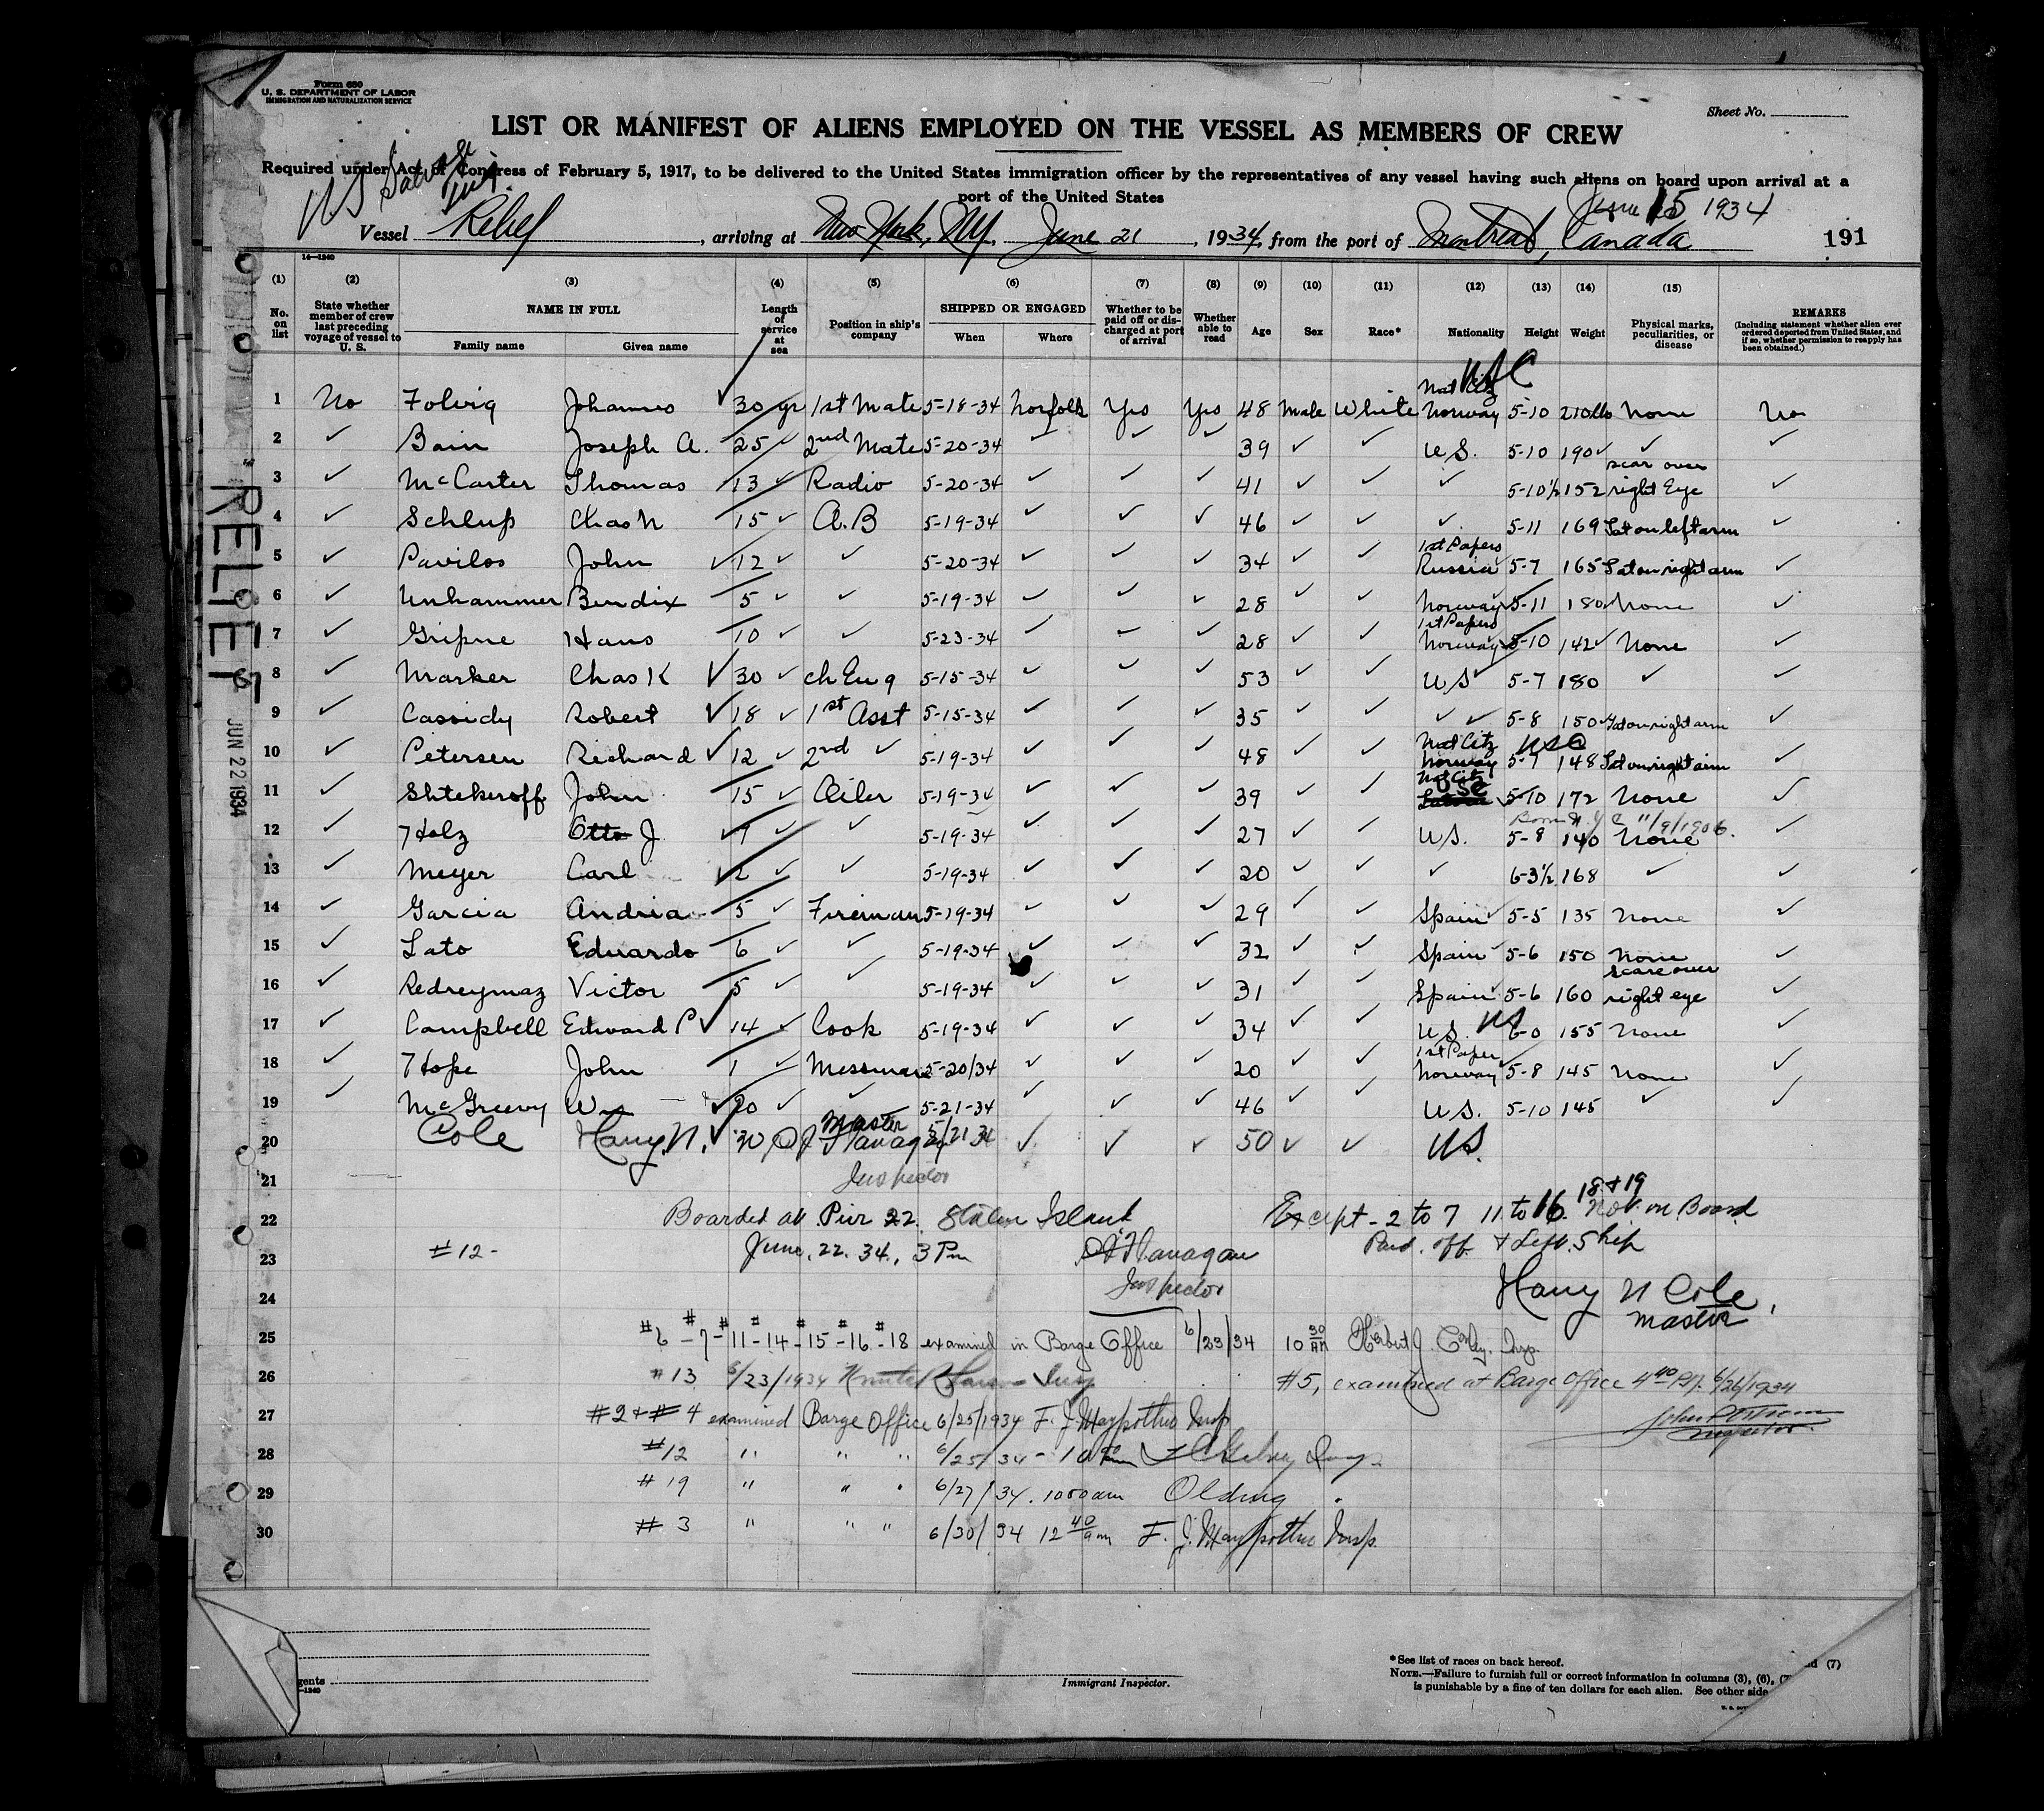 Form 680
U. S. DEPARTMENT OF LABOR
IMMIGRATION AND NATURALIZATION SERVICE
Sheet No.
LIST OR MANIFEST OF ALIENS EMPLOYED ON THE VESSEL AS MEMBERS OF CREW
Required under Act of Congress of February 5, 1917, to be delivered to the United States immigration officer by the representatives of any vessel having such aliens on board upon arrival at a
port of the United States
US Salvage Tug
June 15 1934
Vessel Relief, arriving at New York, NY, June 21, 1934, from the port of Montreal, Canada
191
14—1240
(1) (2) (3) (4) (5) (6) (7) (8) (9) (10) (11) (12) (13) (14) (15)
No. on list
State whether member of crew last preceding voyage of vessel to U. S.
NAME IN FULL
Family name Given name
Length of service at sea
Position in ship's company
SHIPPED OR ENGAGED
When Where
Whether to be paid off or discharged at port of arrival
Whether able to read
Age Sex Race* Nationality Height Weight
Physical marks, peculiarities, or disease
REMARKS
(Including statement whether alien ever ordered deported from United States, and if so, whether permission to reapply has been obtained.)
Nat Citz USC
1 No Folvig Johannes ✓ 30 yr 1st Mate 5-18-34 Norfolk Yes Yes 48 Male White Norway 5-10 210 lbs None No
2 ✓ Bain Joseph A. 25 ✓ 2nd Mate 5-20-34 ✓ ✓ ✓ 39 ✓ ✓ US. 5-10 190 ✓ ✓ ✓
3 ✓ McCarter Thomas 13 ✓ Radio 5-20-34 ✓ ✓ ✓ 41 ✓ ✓ ✓ 5-10½ 152 scar over right Eye ✓
4 ✓ Schlup Chas N 15 ✓ A.B 5-19-34 ✓ ✓ ✓ 46 ✓ ✓ ✓ 5-11 169 Tat on left arm ✓
5 ✓ Pavilos John ✓ 12 ✓ ✓ 5-20-34 ✓ ✓ ✓ 34 ✓ ✓ 1st Papers Russia 5-7 165 Tat on right arm ✓
6 ✓ Unhammer Bendix 5 ✓ ✓ 5-19-34 ✓ ✓ ✓ 28 ✓ ✓ Norway 5-11 180 None ✓
7 ✓ Gripne Hans 10 ✓ ✓ 5-23-34 ✓ ✓ ✓ 28 ✓ ✓ 1st Papers Norway 5-10 142 ✓ None ✓
8 ✓ Marker Chas K ✓ 30 ✓ ch Eng 5-15-34 ✓ ✓ ✓ 53 ✓ ✓ US 5-7 180 ✓ ✓
9 ✓ Cassidy Robert ✓ 18 ✓ 1st Asst 5-15-34 ✓ ✓ ✓ 35 ✓ ✓ ✓ ✓ 5-8 150 Tat on right arm ✓
10 ✓ Petersen Richard ✓ 12 ✓ 2nd ✓ 5-19-34 ✓ ✓ ✓ 48 ✓ ✓ Nat Citz USC Norway 5-7 148 Tat on right arm ✓
11 ✓ Shtekeroff John 15 ✓ Oiler 5-19-34 ✓ ✓ ✓ 39 ✓ ✓ Nat Citz USC 5-10 172 None ✓
12 ✓ Holz Otto J. 9 ✓ ✓ 5-19-34 ✓ ✓ ✓ 27 ✓ ✓ US. 5-8 140 None ✓
Born N.Y.C 11/9/1906.
13 ✓ Meyer Carl ✓ 2 ✓ ✓ 5-19-34 ✓ ✓ ✓ 20 ✓ ✓ ✓ 6-3½ 168 ✓ ✓
14 ✓ Garcia Andria 5 ✓ Fireman 5-19-34 ✓ ✓ ✓ 29 ✓ ✓ Spain 5-5 135 None ✓
15 ✓ Lato Eduardo 6 ✓ ✓ 5-19-34 ✓ ✓ ✓ 32 ✓ ✓ Spain 5-6 150 None ✓
16 ✓ Redreymaz Victor 5 ✓ ✓ 5-19-34 ✓ ✓ ✓ 31 ✓ ✓ Spain 5-6 160 scare over right eye ✓
17 ✓ Campbell Edward P ✓ 14 ✓ Cook 5-19-34 ✓ ✓ ✓ 34 ✓ ✓ US. US 6-0 155 None ✓
18 ✓ Hope John 1 ✓ Messman 5-20/34 ✓ ✓ ✓ 20 ✓ ✓ 1st Paper Norway 5-8 145 None ✓
19 ✓ McGreevy Wm ✓ 20 ✓ ✓ 5-21-34 ✓ ✓ ✓ 46 ✓ ✓ U.S. 5-10 145 ✓ ✓
20 Cole Harry N. ✓ 30 Master 5/21 34 ✓ ✓ ✓ 50 ✓ ✓ US.
OJ Flanagan
21 Inspector
22 Boarded at Pier 22. Staten Island Except - 2 to 7 11 to 16. 18 & 19 Not on Board
23 #12 - June. 22. 34., 3 Pm OJ Flanagan Paid. off. & Left. Ship
Inspector
24 Harry N Cole, Master
25 #6 - #7 - #11 - 14 - #15 - #16 - #18 examined in Barge Office 6/23/34 10 30 AM Herbert Insp.
26 #13 6/23/1934 Insp #5, examined at Barge Office 4 40 P.M. 6/26/1934
27 #2 & #4 examined Barge Office 6/25/1934 F. J. Maypother Insp
Inspector
28 #12 " " " 6/25/34 - 10
29 #19 " " " 6/27/34. 10 00 am Olding
30 #3 " " " 6/30/34 12 40 am F. J. Maypother Insp.
RELIEF
JUN 22 1934
gents
—1240
Immigrant Inspector.
*See list of races on back hereof.
nd (7)
NOTE.—Failure to furnish full or correct information in columns (3), (6), (7
is punishable by a fine of ten dollars for each alien. See other side